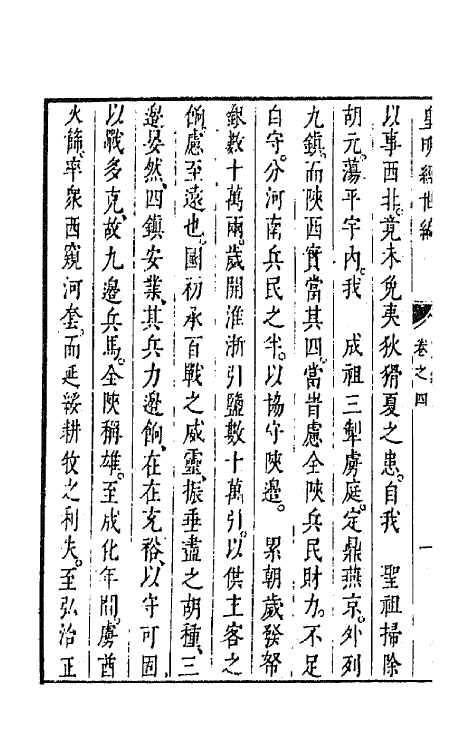 皇明經世編　卷之四　一
以事西北。竟未免夷狄猾夏之患。自我　聖祖掃除
胡元。蕩平宇內。我　成祖三犁虜庭。定鼎燕京。外列
九鎮。而陝西實當其四。當昔慮全陝兵民財力。不足
自守。分河南兵民之半。以協守陝邊。　累朝歲發帑
銀數十萬兩。歲開淮浙引鹽數十萬引。以供主客之
餉。慮至遠也。國初承百戰之威靈、振垂盡之胡種、三
邊晏然、四鎮安業、其兵力邊餉、在在充裕、以守可固
以戰多克、故九邊兵馬。全陝稱雄。至成化年間。虜酋
火篩、率衆西窺河套。而延綏耕牧之利失。至弘治正